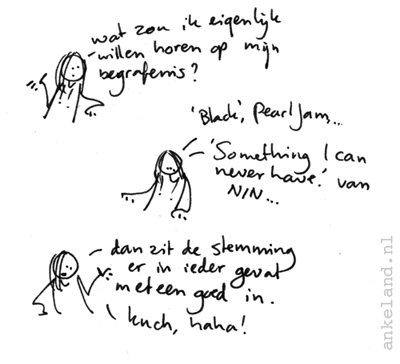 wat zou ik eigenlijk
willen horen op mijn
begrafenis?
'Black', Pearl Jam...
'Something I can
never have.' van
NIN...
dan zit de stemming
er in ieder geval
meteen goed in.
kuch, haha!
ankeland.nl